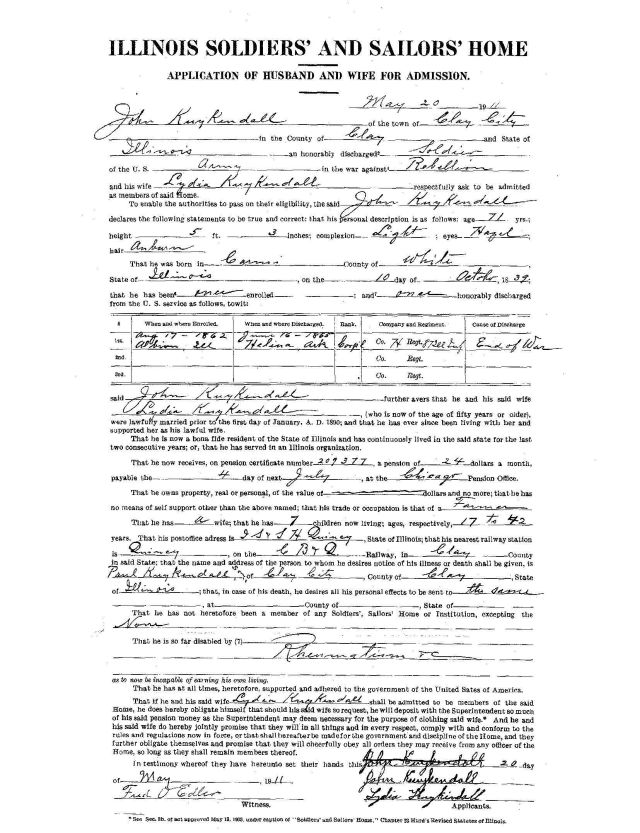 ILLINOIS SOLDIERS' AND SAILORS' HOME
APPLICATION OF HUSBAND AND WIFE FOR ADMISSION.
May 20 1911
John Kuykendall of the town of Clay City
in the County of Clay and State of
Illinois an honorably discharged Soldier
of the U. S. Army in the war against Rebellion
and his wife Lydia Kuykendall respectfully ask to be admitted
as members of said Home.
To enable the authorities to pass on their eligibility, the said John Kuykendall
declares the following statements to be true and correct: that his personal description is as follows: age 71 yrs.;
height 5 ft. 3 inches; complexion Light ; eyes Hazel ;
hair Auburn
That he was born in Carmi County of White
State of Illinois, on the 10 day of Octobr, 1839;
that he has been once enrolled ; and once honorably discharged
from the U. S. service as follows, towit:
# When and where Enrolled. When and where Discharged. Rank. Company and Regiment. Cause of Discharge
1st. Aug 17 - 1862 Albion Ill June 16 - 1865 Helena, Ark Corpl Co. H Regt. 87 Ill Inf End of War
2nd. Co. Regt.
3rd. Co. Regt.
said John Kuykendall further avers that he and his said wife
Lydia Kuykendall, (who is now of the age of fifty years or older),
were lawfully married prior to the first day of January, A. D. 1890; and that he has ever since been living with her and
supported her as his lawful wife.
That he is now a bona fide resident of the State of Illinois and has continuously lived in the said state for the last
two consecutive years; or, that he has served in an Illinois organization.
That he now receives, on pension certificate number 209377, a pension of 24 dollars a month,
payable the 4 day of next July, at the Chicago Pension Office.
That he owns property, real or personal, of the value of dollars and no more; that he has
no means of self support other than the above named; that his trade or occupation is that of a Farmer
That he has a wife; that he has 7 children now living; ages, respectively, 17 to 42
years. That his postoffice adress is I S & S H Quincy, State of Illinois; that his nearest railway station
is Quincy, on the C B & Q Railway, in Clay County
in said State; that the name and address of the person to whom he desires notice of his illness or death shall be given, is
Paul Kuykendall, of Clay City, County of Clay, State
of Illinois ; that, in case of his death, he desires all his personal effects to be sent to the same
, at County of , State of
That he has not heretofore been a member of any Soldiers', Sailors' Home or Institution, excepting the
None
That he is so far disabled by (7)
Rheumatism
as to now be incapable of earning his own living.
That he has at all times, heretofore, supported and adhered to the government of the United Sates of America.
That if he and his said wife Lydia Kuykendall shall be admitted to be members of the said
Home, he does hereby obligate himself that should his said wife so request, he will deposit with the Superintendent so much
of his said pension money as the Superintendent may deem necessary for the purpose of clothing said wife.* And he and
his said wife do hereby jointly promise that they will in all things and in every respect, comply with and conform to the
rules and regulations now in force, or that shall hereafter be made for the government and discipline of the Home, and they
further obligate themselves and promise that they will cheerfully obey all orders they may receive from any officer of the
Home, so long as they shall remain members thereof.
In testimony whereof they have hereunto set their hands this John Kuykendall 20 day
of May, 1911 John Kuykendall
Fred Lydia Kuykendall
Witness. Applicants.
* See Sec. 2b. of act approved May 15, 1903, under caption of "Soldiers' and Sailors' Home," Chapter 23 Hurd's Revised Statutes of Illinois.